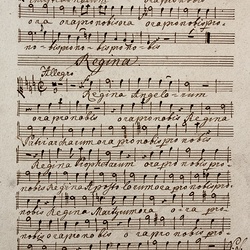 ora ora pro nobis ora ora pro nobis pro
no- bis pro no- bis pro no- bis
Regina
Allegro
Regina Angelo- rum
ora pro nobis ora pro nobis Regina
Patriarcharum ora pro nobis ora pro nobis
Regina Prophetarum ora pro
nobis Regina Apostolorum ora pro nobis pro
nobis Regina Martyrum ora o- ra pro